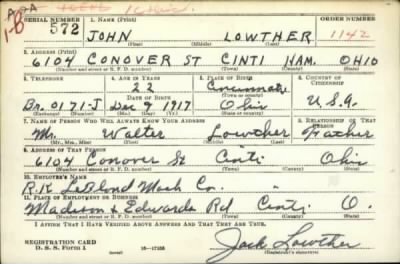 AOA
1-B
SERIAL NUMBER 1. NAME (Print) ORDER NUMBER
572 JOHN LOWTHER 1142
(First) (Middle) (Last)
2. ADDRESS (Print)
6104 CONOVER ST CINTI HAM. OHIO
(Number and street or R. F. D. number) (Town) (County) (State)
3. TELEPHONE 4. AGE IN YEARS 5. PLACE OF BIRTH 6. COUNTRY OF CITIZENSHIP
22 Cincinnati
DATE OF BIRTH (Town or county)
Br. 0171-J Dec 9 1917 Ohio U.S.A.
(Exchange) (Number) (Mo.) (Day) (Yr.) (State or country)
7. NAME OF PERSON WHO WILL ALWAYS KNOW YOUR ADDRESS 8. RELATIONSHIP OF THAT PERSON
Mr. Walter Lowther Father
(Mr., Mrs., Miss) (First) (Middle) (Last)
9. ADDRESS OF THAT PERSON
6104 Conover St Cinti Ohio
(Number and street or R. F. D. number) (Town) (County) (State)
10. EMPLOYER'S NAME
R.K. LeBlond Mach Co. "
11. PLACE OF EMPLOYMENT OR BUSINESS
Madison & Edwards Rd Cinti O.
(Number and street or R. F. D. number) (Town) (County) (State)
I AFFIRM THAT I HAVE VERIFIED ABOVE ANSWERS AND THAT THEY ARE TRUE.
REGISTRATION CARD
D. S. S. Form 1 16—17105 Jack Lowther
(Registrant's signature)